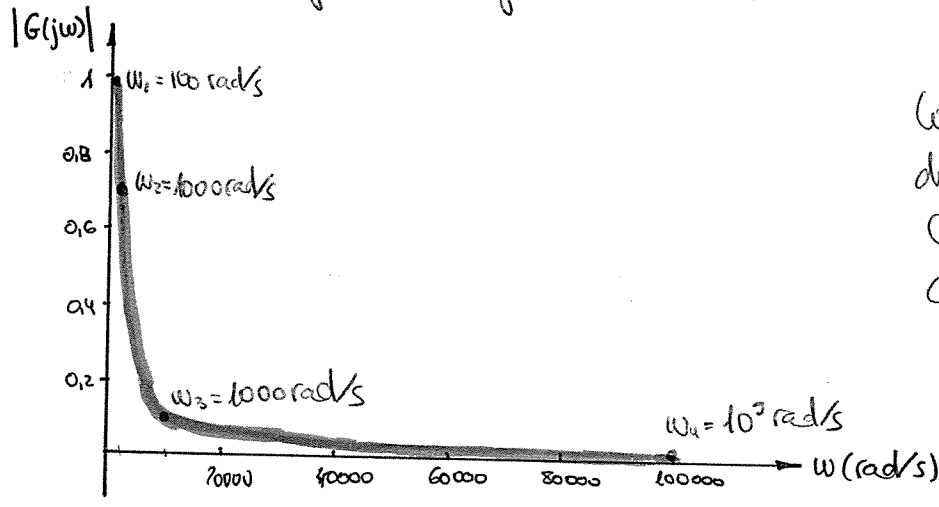 |G(jω)|
1
ω₁ = 100 rad/s
0,8
ω₂ = 1000 rad/s
0,6
0,4
0,2
ω₃ = 1000 rad/s
ω₄ = 10⁵ rad/s
20000 40000 60000 80000 100000
ω (rad/s)